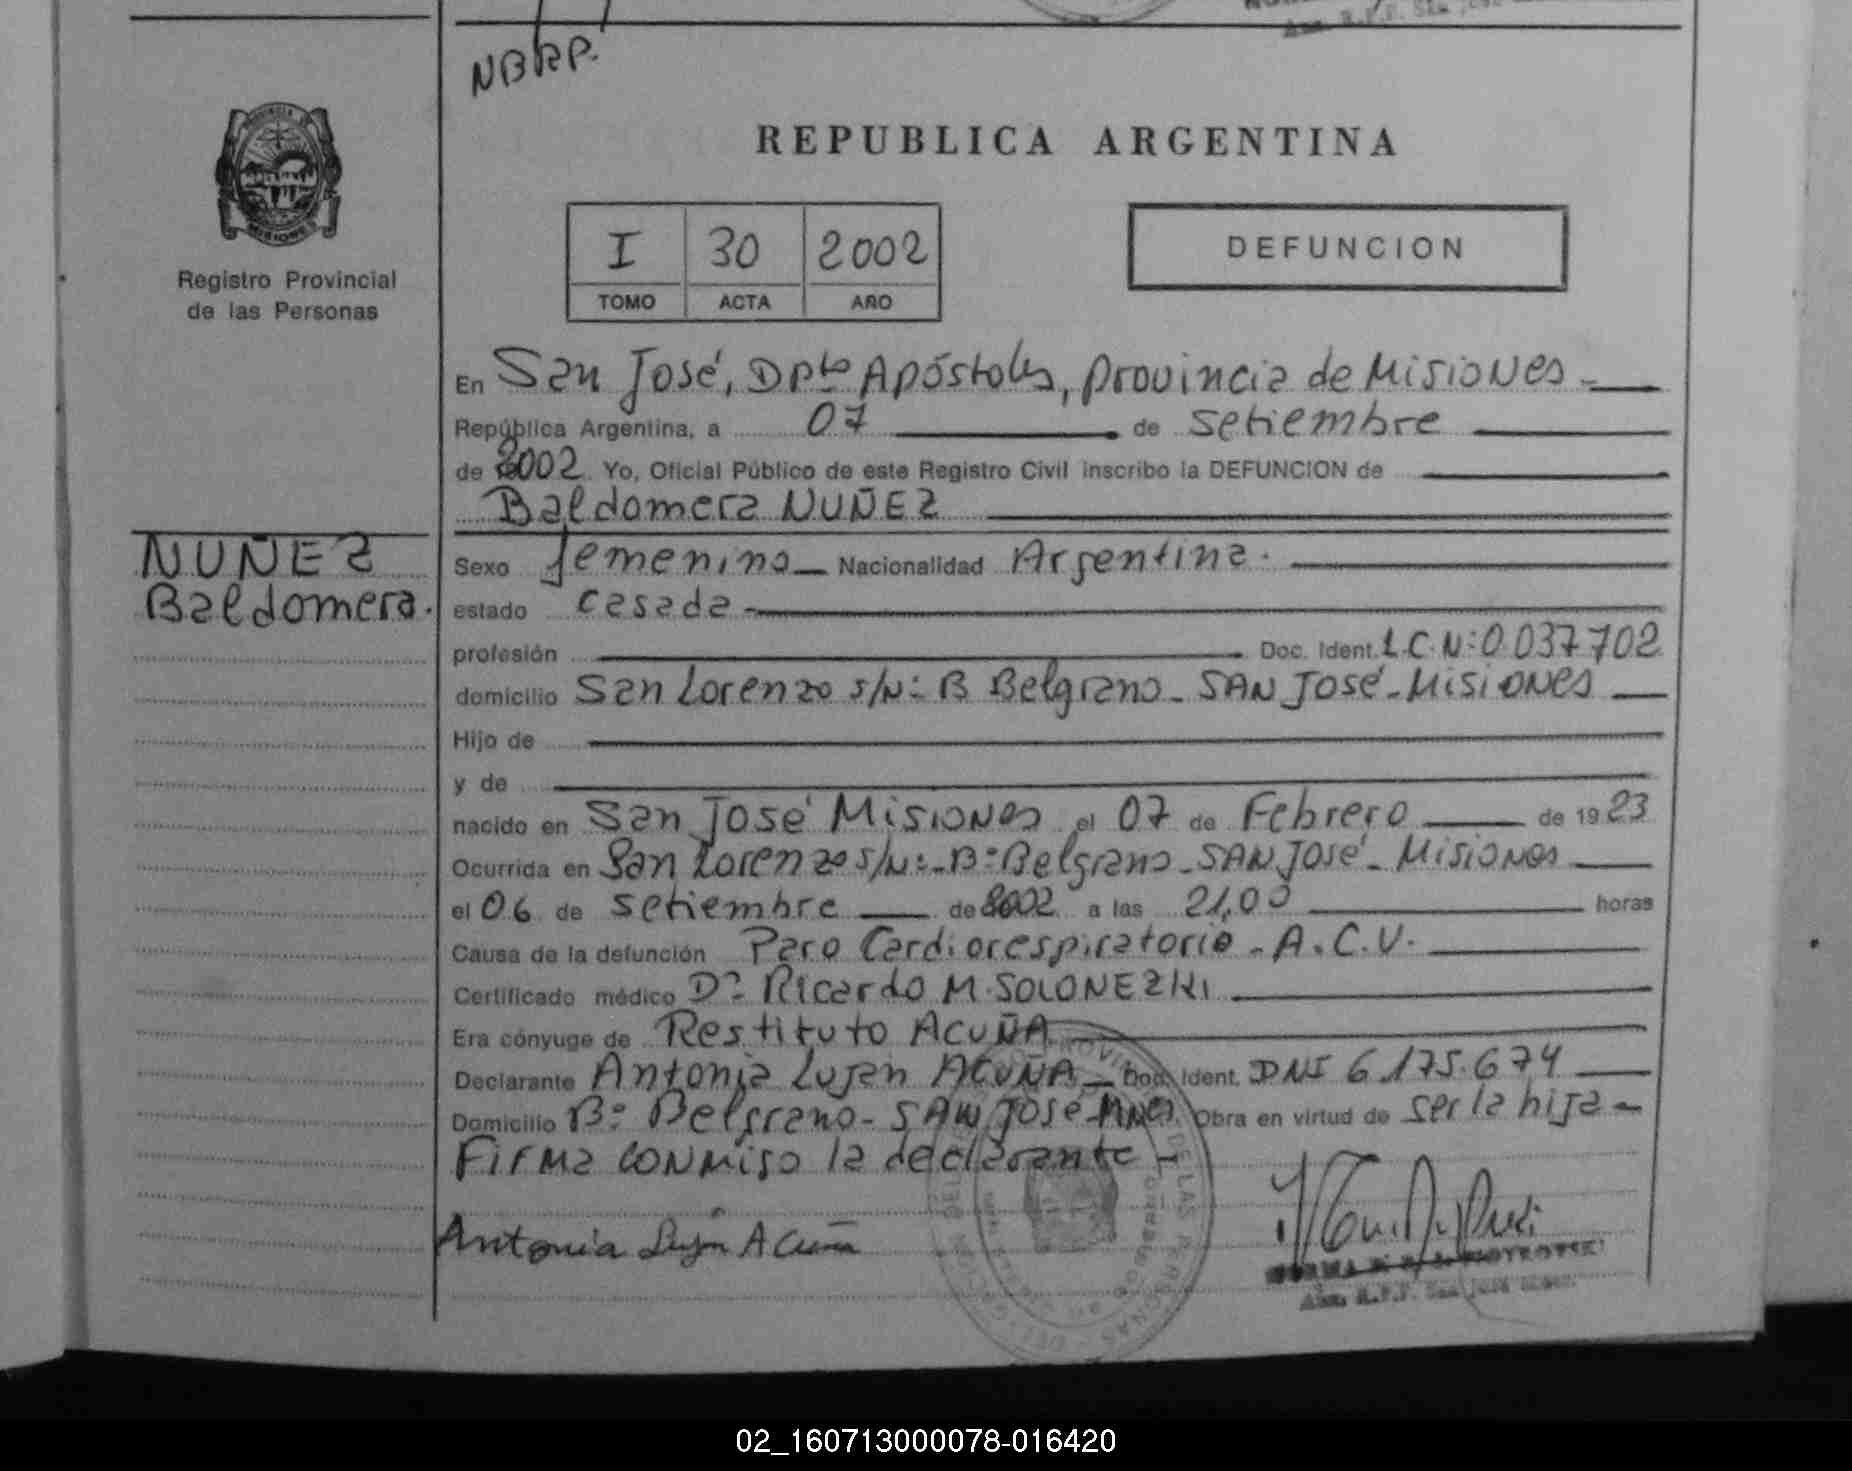 NBRP.
REPUBLICA ARGENTINA
I 30 2002
TOMO ACTA AÑO
DEFUNCION
Registro Provincial
de las Personas
En San José, Dpto Apóstoles, Provincia de Misiones
República Argentina, a 07 de setiembre
de 2002 Yo, Oficial Público de este Registro Civil inscribo la DEFUNCION de
Baldomera NUÑEZ
NUÑEZ
Baldomera.
Sexo femenino Nacionalidad Argentina.
estado casada
profesión Doc. Ident. L.C.Nº 0.037702
domicilio San Lorenzo s/Nº B Belgrano - SAN José - Misiones
Hijo de
y de
nacido en San José Misiones el 07 de Febrero de 1923
Ocurrida en San Lorenzo s/Nº - Bº Belgrano - SAN José - Misiones
el 06 de setiembre de 2002 a las 21,00 horas
Causa de la defunción Paro Cardiorespiratorio - A.C.V.
Certificado médico Dr Ricardo M. SOLONEZKI
Era cónyuge de Restituto ACUÑA
Declarante Antonia Lujan ACUÑA Doc. Ident. DNI 6.175.674
Domicilio Bº Belgrano - SAN José - Mnes. Obra en virtud de ser la hija
Firma conmigo la declarante
Antonia Luján Acuña
02_160713000078-016420